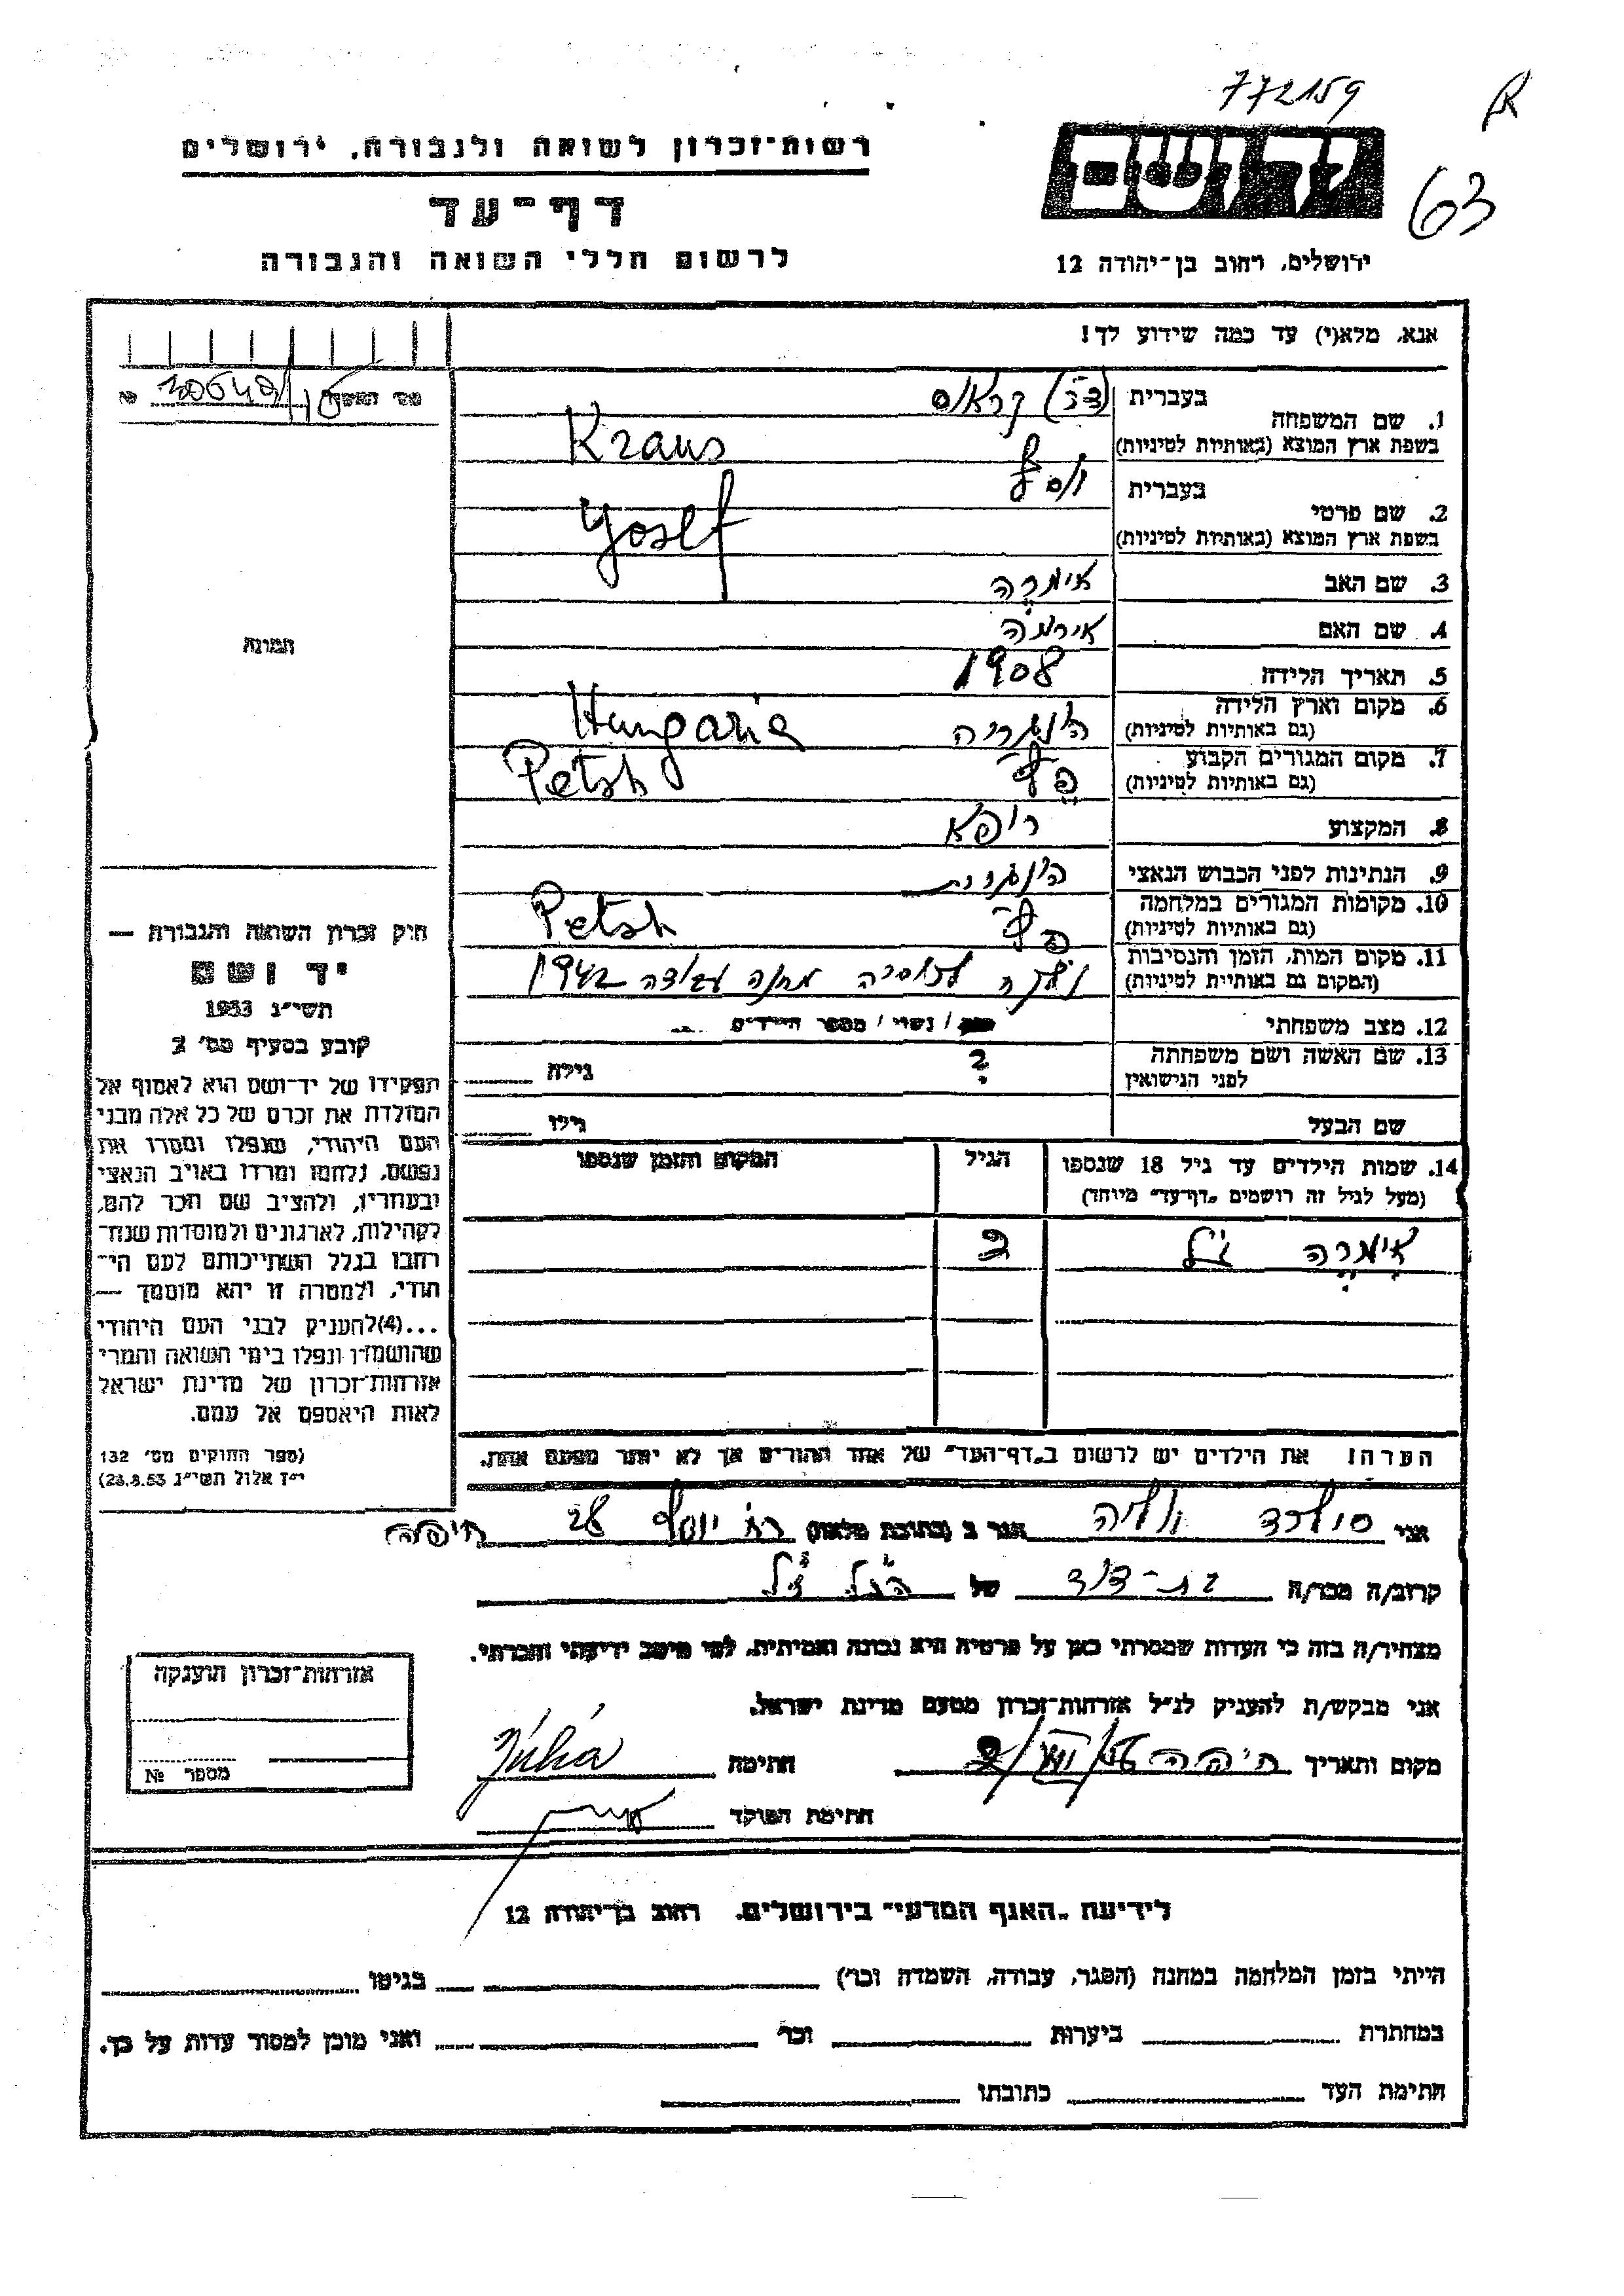 772159
63
רשות־זכרון לשואה ולגבורה, ירושלים
דף־עד
לרשום חללי השואה והגבורה
יד ושם
ירושלים, רחוב בן־יהודה 12
אנא, מלא(י) עד כמה שידוע לך!
1. שם המשפחה בעברית (ד"ר) קראוס
בשפת ארץ המוצא (באותיות לטיניות) Kraus
2. שם פרטי בעברית יוסף
בשפת ארץ המוצא (באותיות לטיניות) Yosef
3. שם האב אימרה
4. שם האם אירמה
5. תאריך הלידה 1908
6. מקום וארץ הלידה הונגריה Hungaria
(גם באותיות לטיניות)
7. מקום המגורים הקבוע Petsh
(גם באותיות לטיניות)
8. המקצוע רופא
9. הנתינות לפני הכבוש הנאצי הונגרית
10. מקומות המגורים במלחמה Petsh
(גם באותיות לטיניות)
11. מקום המות, הזמן והנסיבות מחנה עבודה 1942
(המקום גם באותיות לטיניות)
12. מצב משפחתי / נשוי / מספר הילדים
13. שם האשה ושם משפחתה ? גילה
לפני הנישואין
שם הבעל גילו
14. שמות הילדים עד גיל 18 שנספו הגיל המקום והזמן שנספו
(מעל לגיל זה רושמים "דף־עד" מיוחד)
אימרה ז"ל 2
הערה! את הילדים יש לרשום ב"דף־העד" של אחד ההורים אך לא יותר מפעם אחת.
התמונה
חיק זכרון השואה והגבורה —
יד ושם
תשי"ג 1953
קובע בסעיף מס' 2
תפקידו של יד־ושם הוא לאסוף אל
המולדת את זכרם של כל אלה מבני
העם היהודי, שנפלו ומסרו את
נפשם, נלחמו ומרדו באויב הנאצי
ובעוזריו, ולהציב שם וזכר להם,
לקהילות, לארגונים ולמוסדות שנח־
רבו בגלל השתייכותם לעם הי־
הודי, ולמטרה זו יהא מוסמך —
...(4)להעניק לבני העם היהודי
שהושמדו ונפלו בימי השואה והמרי
אזרחות־זכרון של מדינת ישראל
לאות היאספם אל עמם.
(ספר החוקים מס' 132
י"ז אלול תשי"ג 28.8.53)
אני יוליה הגר ב (כתובת מלאה) יוסף 28 חיפה
קרוב/ה מכר/ה בת-דוד של הנ"ל ז"ל
מצהיר/ה בזה כי העדות שמסרתי כאן על פרטיה היא נכונה ואמיתית, לפי מיטב ידיעתי והכרתי.
אני מבקש/ת להעניק לנ"ל אזרחות־זכרון מטעם מדינת ישראל.
מקום ותאריך חיפה חתימה Júlia
חתימת הפוקד
אזרחות־זכרון הוענקה
מספר №
לידיעת "האגף המדעי" בירושלים. רחוב בן־יהודה 12
הייתי בזמן המלחמה במחנה (הסגר, עבודה, השמדה וכו') בגיטו
במחתרת ביערות וכו' ואני מוכן למסור עדות על כך.
חתימת העד כתובתו